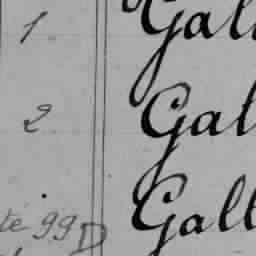 1 Gall
2 Gal
te 99 D Gall